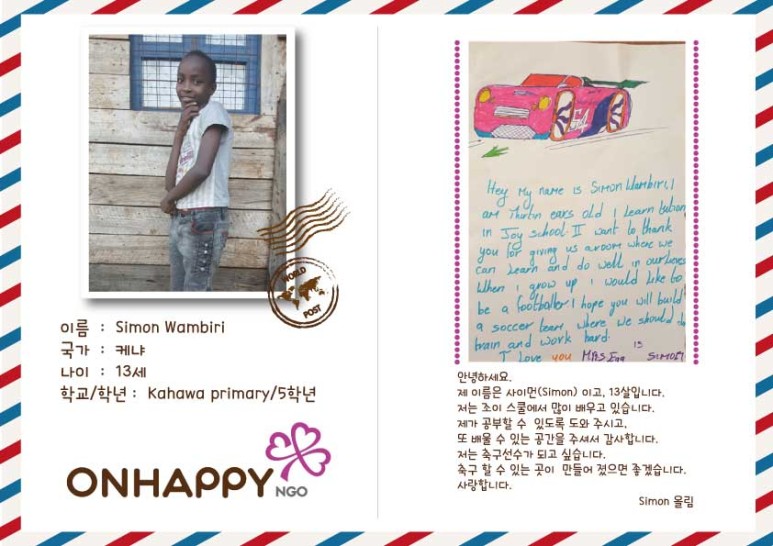 이름 : Simon Wambiri
국가 : 케냐
나이 : 13세
학교/학년 : Kahawa primary/5학년
WORLD
POST
ONHAPPY
NGO
64
Hey My name is Simon Wambiri, I
am thirtin ears old I learn
in Joy school. II want to thank
you for giving us a room where we
can learn and do well in our
When I grow up I would like to
be a footballer. I hope you will build
a soccer team, where we should
train and work hard.
I love you MRS SIMON
안녕하세요.
제 이름은 사이먼(Simon) 이고, 13살입니다.
저는 조이 스쿨에서 많이 배우고 있습니다.
제가 공부할 수 있도록 도와 주시고,
또 배울 수 있는 공간을 주셔서 감사합니다.
저는 축구선수가 되고 싶습니다.
축구 할 수 있는 곳이 만들어 졌으면 좋겠습니다.
사랑합니다.
Simon 올림